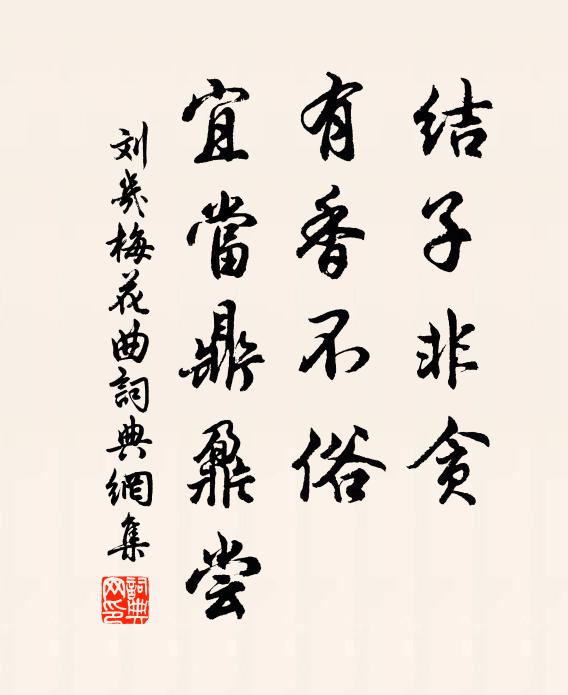 结子非贪
有香不俗
宜當鼎鼐尝
刘几梅花曲詞典網集
詞典网印